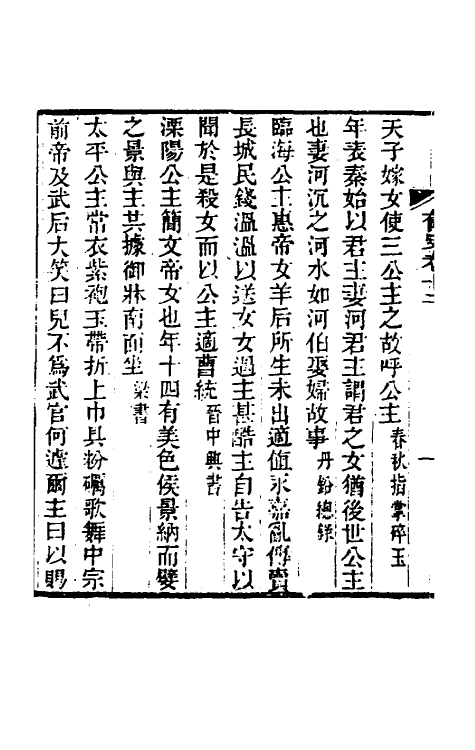 天子嫁女使三公主之故呼公主春秋指掌碎玉
年表秦始以君主妻河君主謂君之女猶後世公主
也妻河沉之河水如河伯娶婦故事丹鉛總錄
臨海公主惠帝女羊后所生未出適值永嘉亂傳賣
長城民錢溫溫以送女女遇主甚酷主自告太守以
聞於是殺女而以公主適曹統晉中興書
溧陽公主簡文帝女也年十四有美色侯景納而嬖
之景與主共據御牀南面坐梁書
太平公主常衣紫袍玉帶折上巾具粉礪歌舞中宗
前帝及武后大笑曰兒不爲武官何遽爾主曰以賜